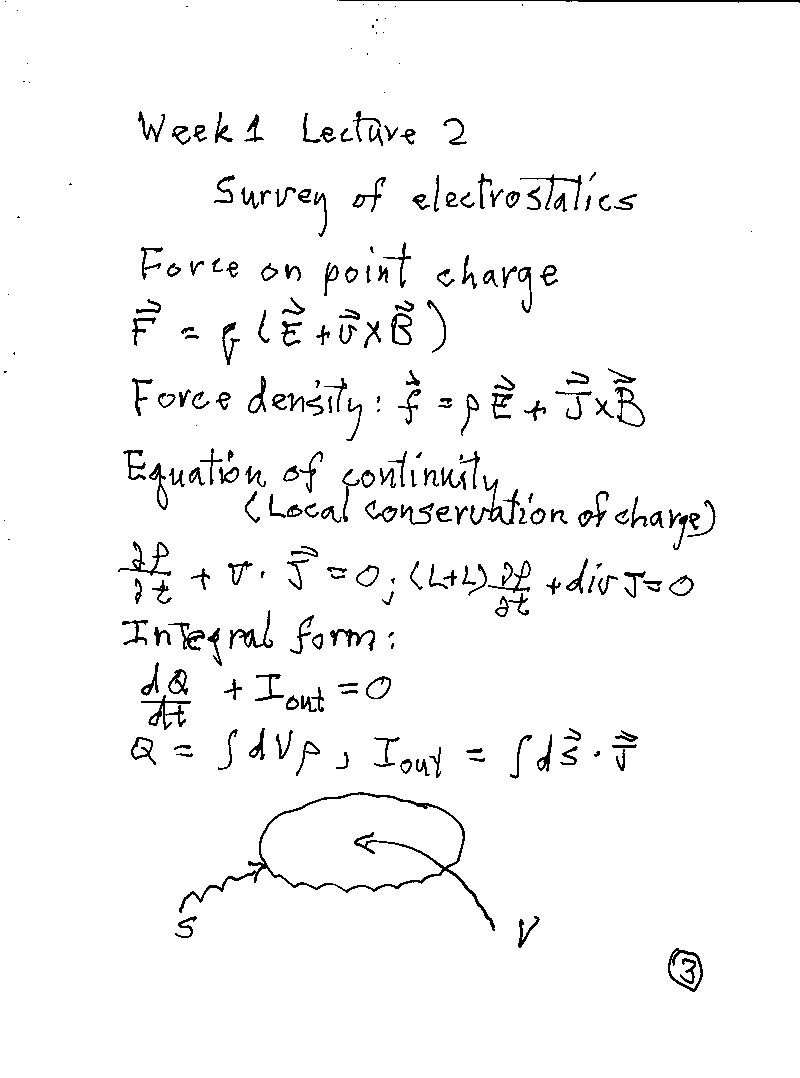 Week 1 Lecture 2
Survey of electrostatics
Force on point charge
F⃗ = q (E⃗ + v⃗ × B⃗)
Force density: f⃗ = ρ E⃗ + J⃗ × B⃗
Equation of continuity
(Local conservation of charge)
∂ρ/∂t + ∇ · J⃗ = 0; (L+L) ∂ρ/∂t + div J = 0
Integral form:
dQ/dt + I_out = 0
Q = ∫ dV ρ, I_out = ∫ dS⃗ · J⃗
S V
3